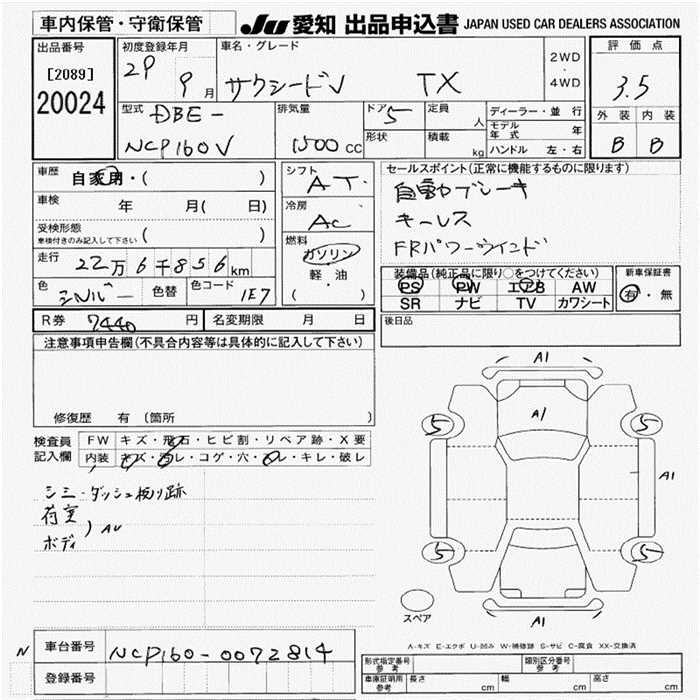 車内保管・守衛保管
JU 愛知 出品申込書 JAPAN USED CAR DEALERS ASSOCIATION
出品番号
[2089]
20024
初度登録年月
29 9月
車名・グレード
サクシードV TX
2WD
・
4WD
評価点
3.5
外装 内装
B B
型式
DBE-
NCP160V
排気量
1500 CC
ドア 5
形状
定員 人
積載 kg
ディーラー・並行
モデル年式 年
ハンドル 左・右
車歴
自家用・( )
車検 年 月( 日)
受検形態
車検付きのみ記入して下さい ( )
走行 22万6千856km
色 シルバー 色替 色コード 1E7
シフト
AT
冷房
AC
燃料
ガソリン
軽・油
( )
セールスポイント(正常に機能するものに限ります)
自動ブレーキ
キーレス
FRパワーウインド
装備品(純正品に限り○をつけてください)
PS PW エアB AW
SR ナビ TV カワシート
新車保証書
有・無
R券 7440円 名変期限 月 日
後日品
注意事項申告欄(不具合内容等は具体的に記入して下さい)
修復歴 有(箇所
検査員記入欄
FW キズ・飛石・ヒビ割・リペア跡・X要
内装 キズ・汚レ・コゲ・穴・スレ・キレ・破レ
シミ・ダッシュ板リ跡
荷室
ボディ
) AU
A1
5 A1 5
A1
5 5
A1
スペア
A-キズ E-エクボ U-凹み W-補修跡 S-サビ C-腐食 XX-交換済
N
車台番号 NCP160-0072814
登録番号
形式指定番号
参考
類別区分番号
参考
車庫証明用
参考
長さ cm 幅 cm 高さ cm